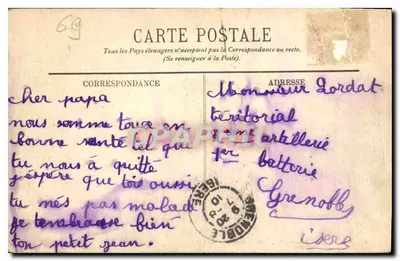 69
CARTE POSTALE
Tous les Pays étrangers n'acceptent pas la Correspondance au recto.
(Se renseigner à la Poste).
CORRESPONDANCE
cher papa
nous somme tous en
bonne sente tel que
tu nous à quitté
j'espère que toi oussi
tu nés pas malad
je tembrasse bien
ton petit jean.
ADRESSE
Monsieur Dordat
téritorial
artillerie
1er batterie
Grenoble
isère
GRENOBLE
ISÈRE